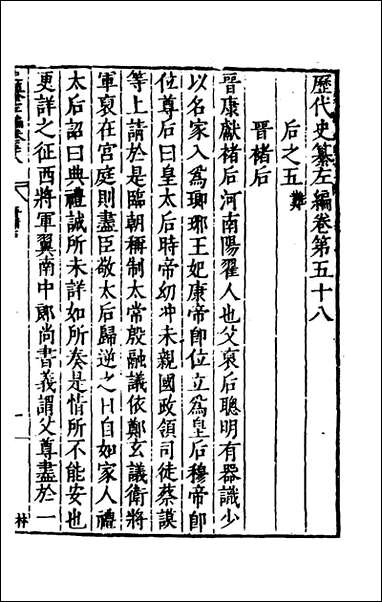 歷代史纂左編卷第五十八
后之五難
晉褚后
晉康獻褚后河南陽翟人也父裒后聰明有器識少
以名家入爲瑯琊王妃康帝卽位立爲皇后穆帝卽
位尊后曰皇太后時帝幼冲未親國政領司徒蔡謨
等上請於是臨朝稱制太常殷融議依鄭玄議衛將
軍裒在宮庭則盡臣敬太后歸寧之日自如家人禮
太后詔曰典禮誠所未詳如所奏是情所不能安也
更詳之征西將軍翼南中郞尚書義謂父尊盡於一
林